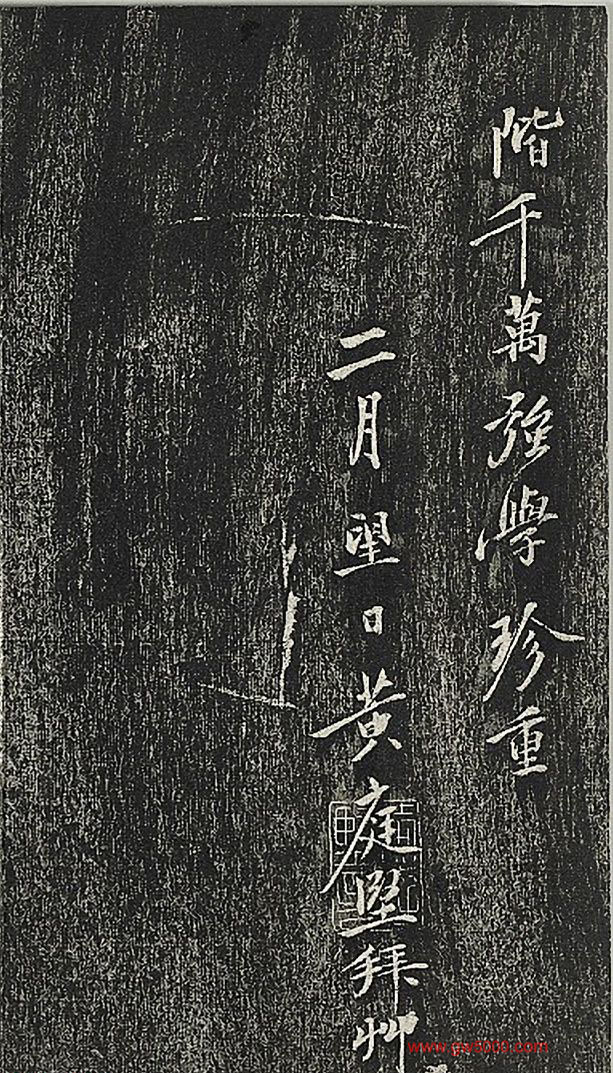 階千萬強學珍重
二月望日黃庭堅拜艸
www.gw5000.com